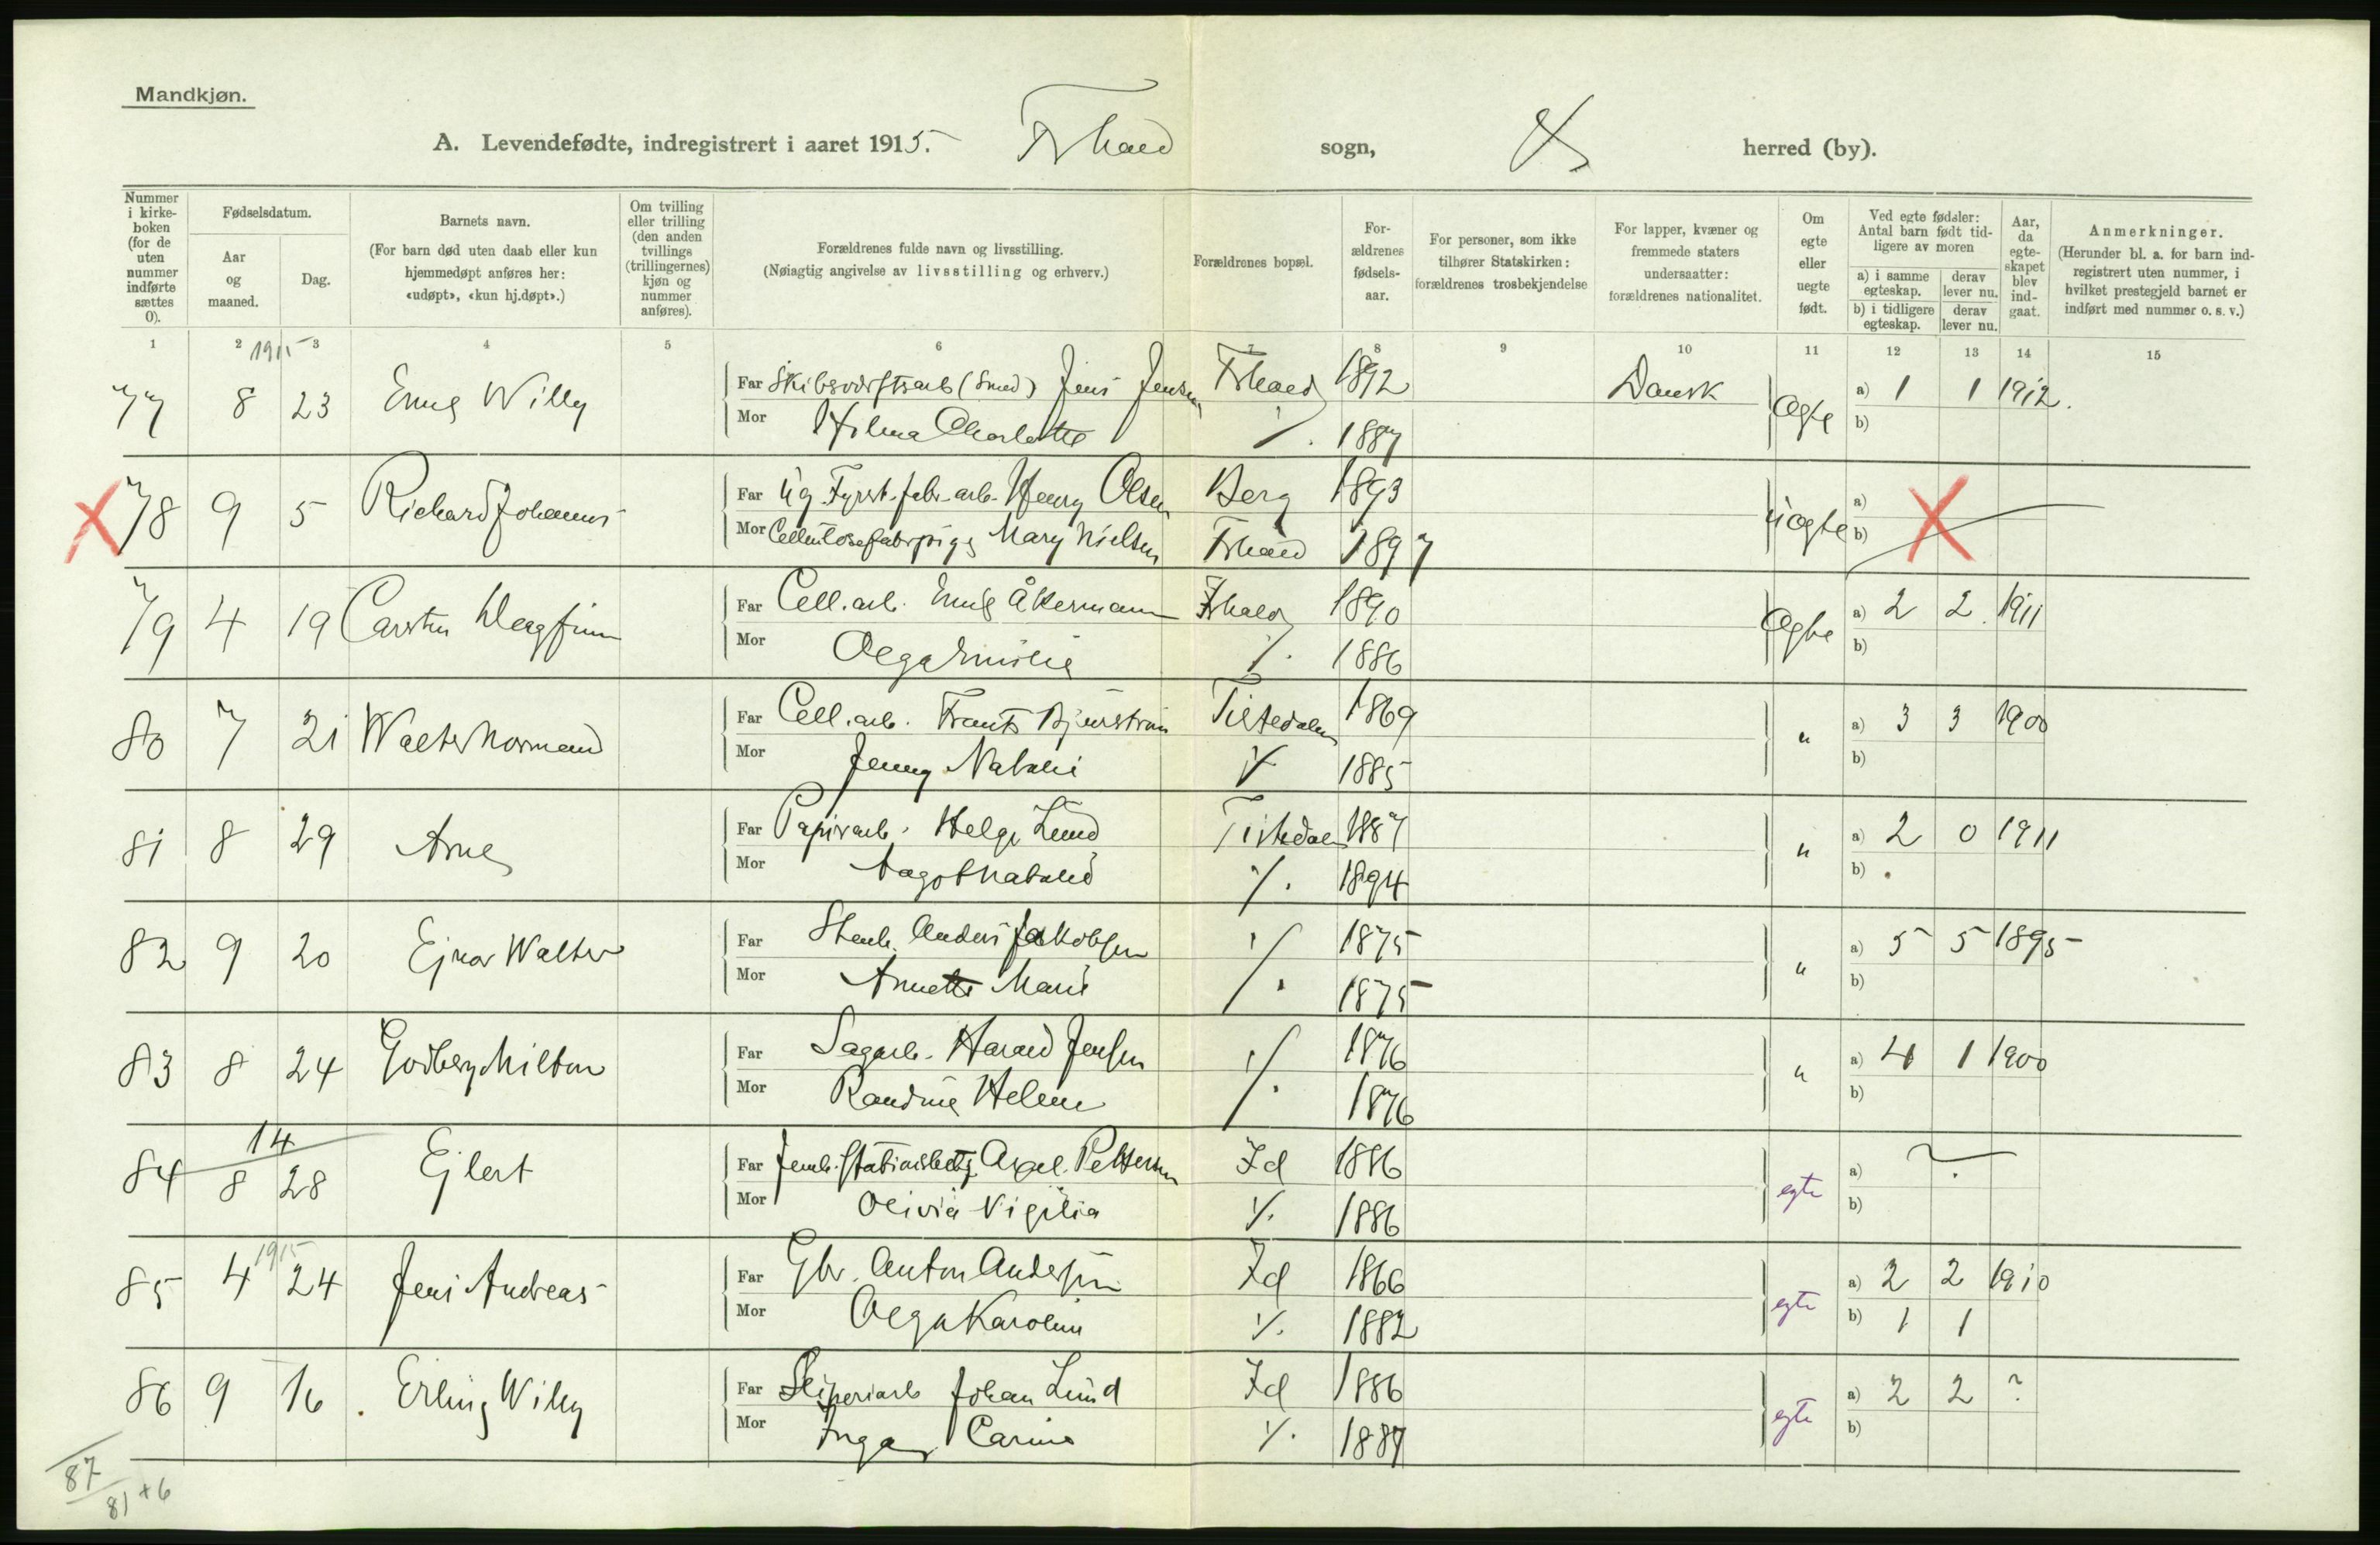 Mandkjøn.
A. Levendefødte, indregistrert i aaret 1915. Frhald sogn, herred (by).
Nummer i kirkeboken (for de uten nummer indførte sættes 0).
Fødselsdatum.
Aar og maaned.
Dag.
Barnets navn.
(For barn død uten daab eller kun hjemmedøpt anføres her: «udøpt», «kun hj.døpt».)
Om tvilling eller trilling (den anden tvillings (trillingernes) kjøn og nummer anføres).
Forældrenes fulde navn og livsstilling.
(Nøiagtig angivelse av livsstilling og erhverv.)
Forældrenes bopæl.
Forældrenes fødselsaar.
For personer, som ikke tilhører Statskirken: forældrenes trosbekjendelse
For lapper, kvæner og fremmede staters undersaatter: forældrenes nationalitet.
Om egte eller uegte født.
Ved egte fødsler: Antal barn født tidligere av moren
a) i samme egteskap. derav lever nu.
b) i tidligere egteskap. derav lever nu.
Aar, da egteskapet blev indgaat.
Anmerkninger.
(Herunder bl. a. for barn indregistrert uten nummer, i hvilket prestegjeld barnet er indført med nummer o. s. v.)
1 2 1915 3 4 5 6 7 8 9 10 11 12 13 14 15
77 8 23 Emil Willy Far Skibsverftsarb (Smed) Jens Jensen Frhald 1892 Dansk Ægte a) 1 1 1912.
Mor Hilma Charlotte ". 1887 b)
X 78 9 5 Richard Johannes Far Ug. Fyrst.fabr.arb. Henry Olsen Berg 1893 Uægte a) X
Mor Cellulosefabrpige Mary Nielsen Frhald 1897 b)
79 4 19 Carsten Dagfinn Far Cell.arb. Emil Åkermann Frhald 1890 Ægte a) 2 2 1911
Mor Olga Emilie ". 1886 b)
80 7 21 Walter Normand Far Cell.arb. Frants Bjurstrøm Tistedalen 1869 " a) 3 3 1900
Mor Jenny Natalie " 1885 b)
81 8 29 Arne Far Papirarb. Helge Lund Tistedalen 1887 " a) 2 0 1911
Mor Aagot Natalie ". 1894 b)
82 9 20 Ejnar Walter Far Stenh. Anders Jakobsen " 1875 " a) 5 5 1895
Mor Annette Marie ". 1875 b)
83 8 24 Godberg Milton Far Sagarb. Harald Jensen " 1876 " a) 4 1 1900
Mor Randine Helene ". 1876 b)
84 14 8 28 Ejlert Far Jernb.stationsbetj. Axel Pettersen Id 1886 egte a)
Mor Olivia Vigilia ". 1886 b)
85 4 1915 24 Jens Andreas Far Gbr. Anton Andersen Id 1866 egte a) 2 2 1910
Mor Olga Karoline ". 1882 b) 1 1
86 9 16 Erling Willy Far Sliperiarb Johan Lund Id 1886 egte a) 2 2 ?
Mor Inga Carine ". 1887 b)
87
81+6